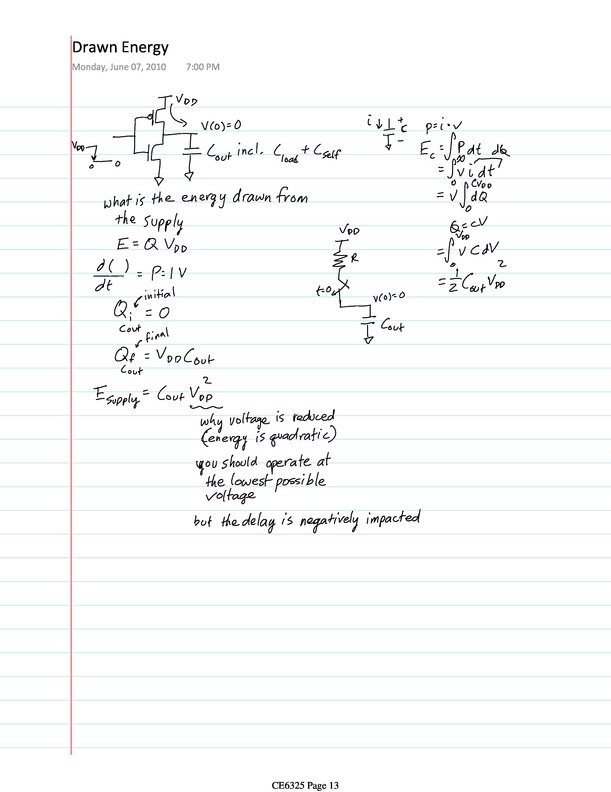 Drawn Energy
Monday, June 07, 2010 7:00 PM
VDD
V(0)=0
VDD
0
0
Cout incl. Cload + Cself
what is the energy drawn from
the supply
E = Q VDD
d( )/dt = P = IV
initial
Qi = 0
Cout
final
Qf = VDD Cout
Cout
Esupply = Cout VDD²
why voltage is reduced
(energy is quadratic)
you should operate at
the lowest possible
voltage
but the delay is negatively impacted
VDD
R
t=0
V(0)=0
Cout
i + C −
p = i·v
Ec = ∫P dt dQ
= ∫₀^∞ v i dt
= v ∫₀^CVDD dQ
Q = CV
= ∫₀^VDD V C dV
= 1/2 Cout VDD²
CE6325 Page 13